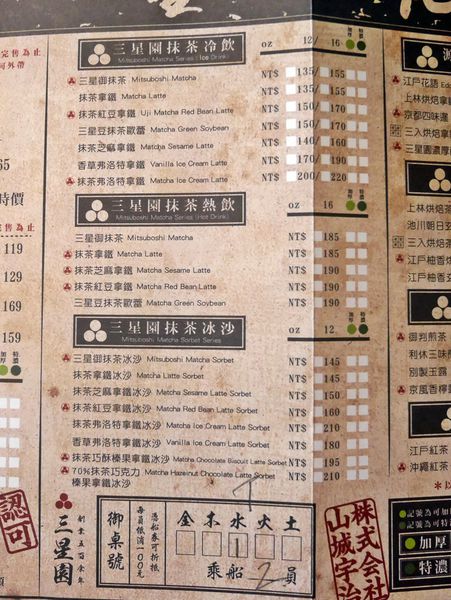 完售為止
可外帶
65
時價
完售為止
119
129
169
159
三星園抹茶冷飲 oz 12/ 16 加厚 特濃
Mitsuboshi Matcha Series (Ice Drink)
三星御抹茶 Mitsuboshi Matcha NT$ 135/ 155
抹茶拿鐵 Matcha Latte NT$ 135/ 155
抹茶紅豆拿鐵 Uji Matcha Red Bean Latte NT$ 150/ 170
三星豆抹茶歐蕾 Matcha Green Soybean NT$ 150/ 170
抹茶芝麻拿鐵 Matcha Sesame Latte NT$ 140/ 160
香草弗洛特拿鐵 Vanilla Ice Cream Latte NT$ 170/ 190
抹茶弗洛特拿鐵 Matcha Ice Cream Latte NT$ 200/ 220
三星園抹茶熱飲 oz 16 加厚 特濃
Mitsuboshi Matcha Series (Hot Drink)
三星御抹茶 Mitsuboshi Matcha NT$ 185
抹茶拿鐵 Matcha Latte NT$ 185
抹茶芝麻拿鐵 Matcha Sesame Latte NT$ 190
抹茶紅豆拿鐵 Matcha Red Bean Latte NT$ 190
三星豆抹茶歐蕾 Matcha Green Soybean NT$ 190
三星園抹茶冰沙 oz 12 加厚 特濃
Mitsuboshi Matcha Sorbet Series
三星御抹茶冰沙 Mitsuboshi Matcha Sorbet NT$ 145
抹茶拿鐵冰沙 Matcha Latte Sorbet NT$ 145
抹茶芝麻拿鐵冰沙 Matcha Sesame Latte Sorbet NT$ 150
抹茶紅豆拿鐵冰沙 Matcha Red Bean Latte Sorbet NT$ 160
抹茶弗洛特拿鐵冰沙 Matcha Ice Cream Latte Sorbet NT$ 210
香草弗洛特拿鐵冰沙 Vanilla Ice Cream Latte Sorbet NT$ 180
抹茶巧酥榛果拿鐵冰沙 Matcha Chocolate Biscuit Latte Sorbet NT$ 195
70%抹茶巧克力 Matcha Hazelnut Chocolate Latte Sorbet NT$ 210
榛果拿鐵冰沙
認可
三星園
創業五百余年
御桌號
憑船券可折抵
每員低消100元
金 木 水 火 土
1
乘船 2 員
株式会社
山城宇治
江戶花語
上林烘焙拿
京都四味濃
三入烘焙拿
三星園濃厚
上林烘焙
池川朝日玄
三入烘焙茶
江戶柚香
江戶柚香
御判煎茶
利休三味
別製玉露
京風香檸
江戶紅茶
沖繩紅茶
記號為可加
記號為可特
加厚
特濃